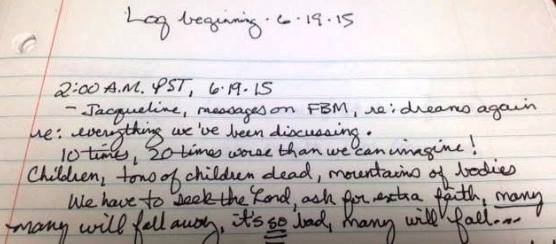 Log beginning · 6·19·15
2:00 A.M. PST, 6·19·15
- Jacqueline, messages on FBM, re: dreams again
re: everything we've been discussing.
10 times, 20 times worse than we can imagine!
Children, tons of children dead, mountains of bodies
We have to seek the Lord, ask for extra faith, many
many will fall away, it's so bad, many will fall....